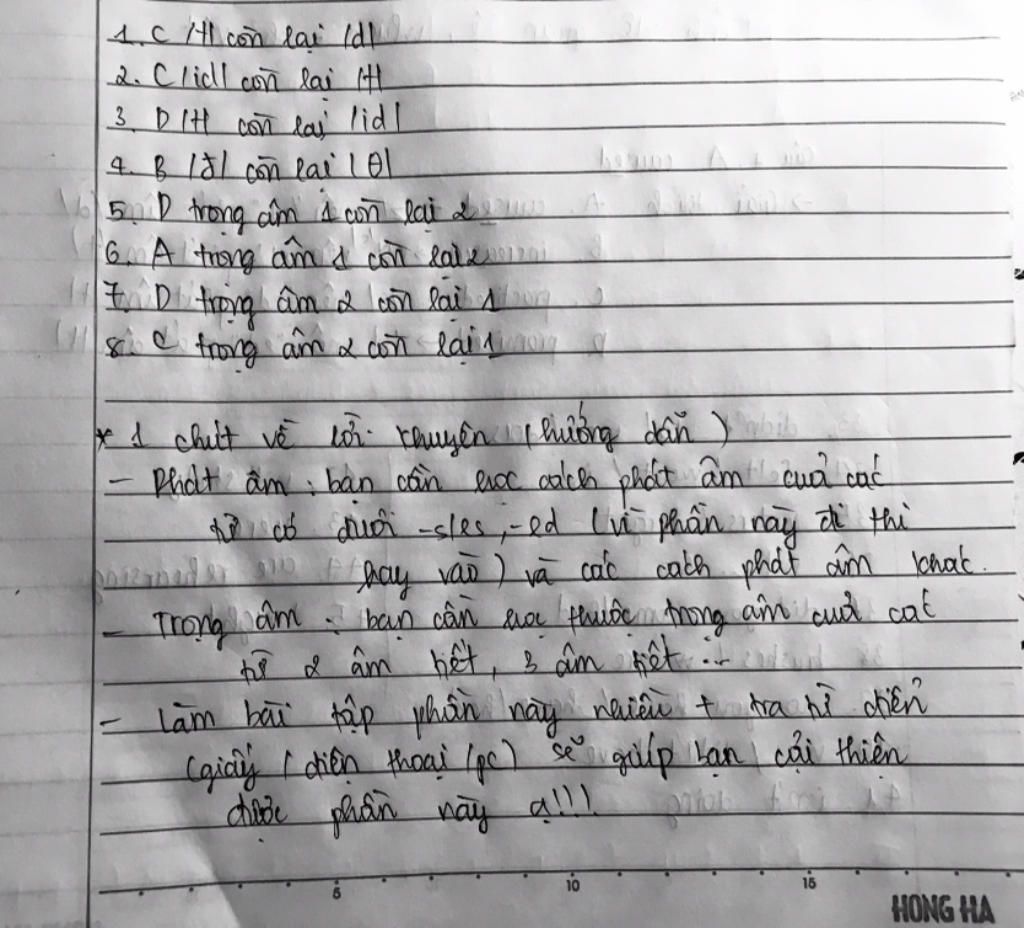 1. C /t/ còn lại /d/
2. C /id/ còn lại /t/
3. D /t/ còn lại /id/
4. B /ð/ còn lại /θ/
5. D trọng âm 1 còn lại 2
6. A trọng âm 1 còn lại 2
7. D trọng âm 2 còn lại 1
8. C trọng âm 2 còn lại 1
* 1 chút về lời khuyên (hướng dẫn)
- Phát âm : bạn cần học cách phát âm của các
từ có đuôi -s/es, -ed (vì phần này đi thi
hay vào) và các cách phát âm khác.
- Trọng âm : bạn cần học thuộc trọng âm của các
từ 2 âm tiết, 3 âm tiết ...
- Làm bài tập phần này nhiều + tra từ điển
(giấy / điện thoại / pc) sẽ giúp bạn cải thiện
được phần này ạ!!!
5 10 15
HONG HA